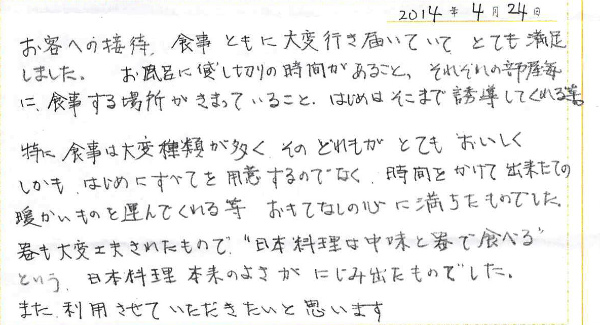 2014年4月24日
お客への接待、食事ともに大変行き届いていてとても満足
しました。 お風呂に貸し切りの時間があること、それぞれの部屋毎
に、食事する場所がきまっていること、はじめはそこまで誘導してくれる等。
特に食事は大変種類が多く、そのどれもがとてもおいしく
しかも、はじめにすべてを用意するのでなく、時間をかけて出来たての
暖かいものを運んでくれる等 おもてなしの心に満ちたものでした。
器も大変工夫されたもので、"日本料理は中味と器で食べる"
という、日本料理本来のよさがにじみ出たものでした。
また、利用させていただきたいと思います